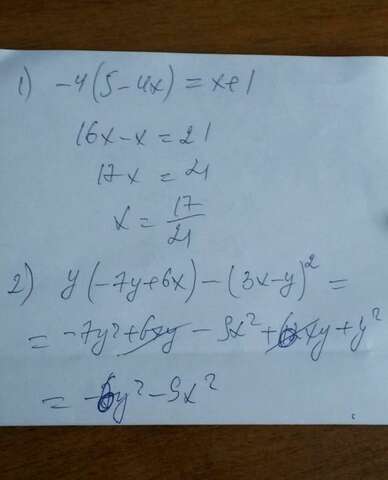 1) -4(5-4x) = x+1
16x-x = 21
17x = 21
x = 17/21
2) y(-7y+6x)-(3x-y)² =
= -7y²+6xy-9x²+6xy+y²
= -6y²-9x²